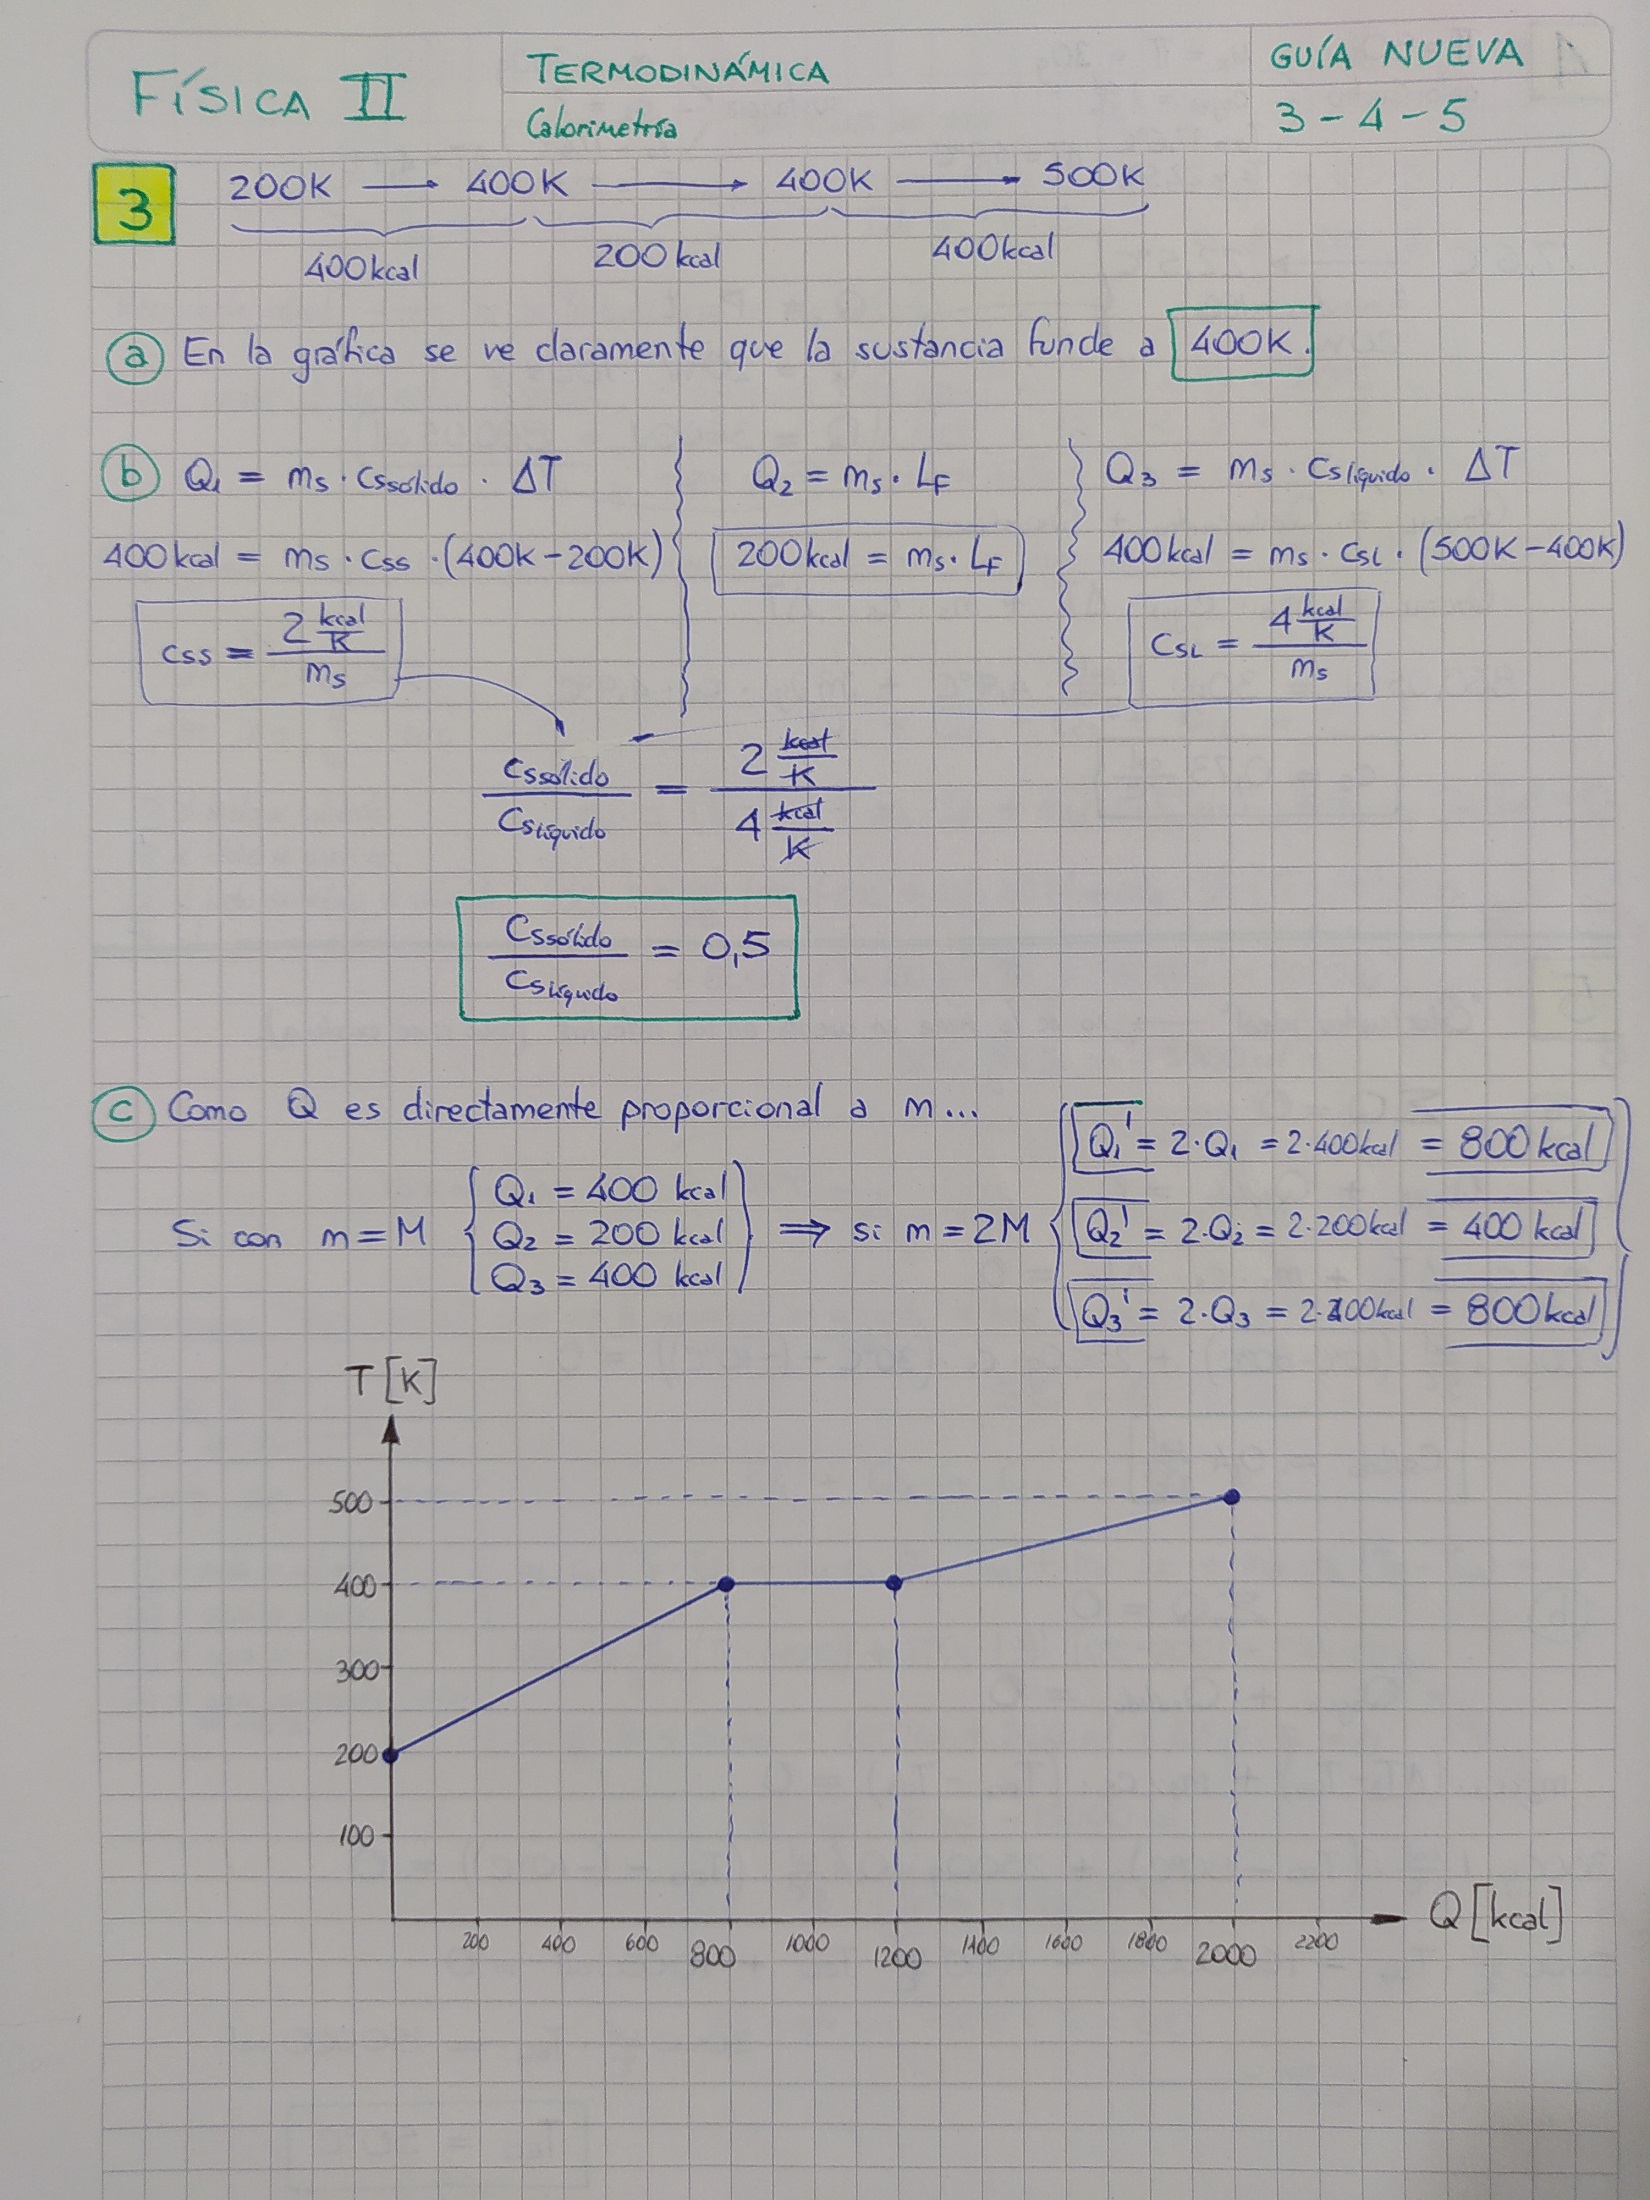 FÍSICA II
TERMODINÁMICA
Calorimetría
GUÍA NUEVA
3-4-5
3
200K → 400K → 400K → 500K
400kcal 200kcal 400kcal
a En la gráfica se ve claramente que la sustancia funde a 400K.
b Q1 = ms · Cssólido · ΔT
400kcal = ms · Css · (400K-200K)
Css = 2 kcal/K / ms
Q2 = ms · LF
200kcal = ms · LF
Q3 = ms · Cslíquido · ΔT
400kcal = ms · CSL · (500K-400K)
CSL = 4 kcal/K / ms
Cssólido / Cslíquido = 2 kcal/K / 4 kcal/K
Cssólido / Cslíquido = 0,5
c Como Q es directamente proporcional a m...
Si con m=M { Q1 = 400 kcal
Q2 = 200 kcal
Q3 = 400 kcal } ⇒ si m=2M
Q1' = 2·Q1 = 2·400kcal = 800kcal
Q2' = 2·Q2 = 2·200kcal = 400kcal
Q3' = 2·Q3 = 2·400kcal = 800kcal
T[K]
500
400
300
200
100
200 400 600 800 1000 1200 1400 1600 1800 2000 2200
Q[kcal]